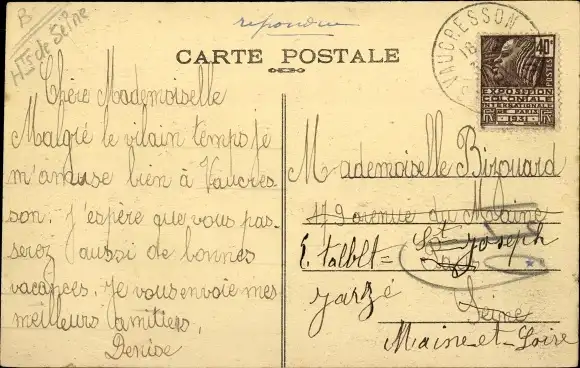 B
Hts de Seine
répondue
CARTE POSTALE
VAUCRESSON
18
40c
POSTES
EXPOSITION
COLONIALE
INTERNATIONALE
DE PARIS
1931
Chère Mademoiselle
Malgré le vilain temps je
m'amuse bien à Vaucres
son. J'espère que vous pas-
serez aussi de bonnes
vacances. Je vous envoie mes
meilleurs amitiers,
Denise
Mademoiselle Birouard
19 avenue du Maine
E. Talbet = St Joseph
Paris
Jarzé
Seine
Maine-et-Loire